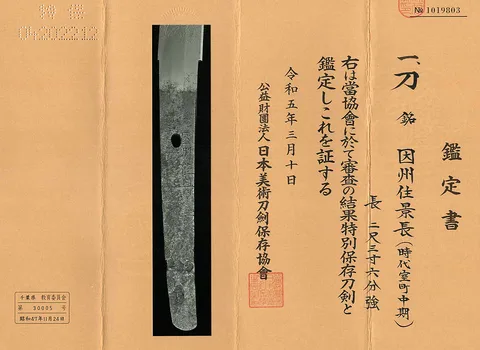 鑑定書
一、刀 銘 因州住景長(時代室町中期)
長 二尺三寸六分強
右は當協會に於て審査の結果特別保存刀剣と
鑑定しこれを証する
令和五年三月十日
公益財團法人日本美術刀劍保存協會
№ 1019803
特保
04202212
千葉県 教育委員会
第 30005 号
昭和47年11月24日